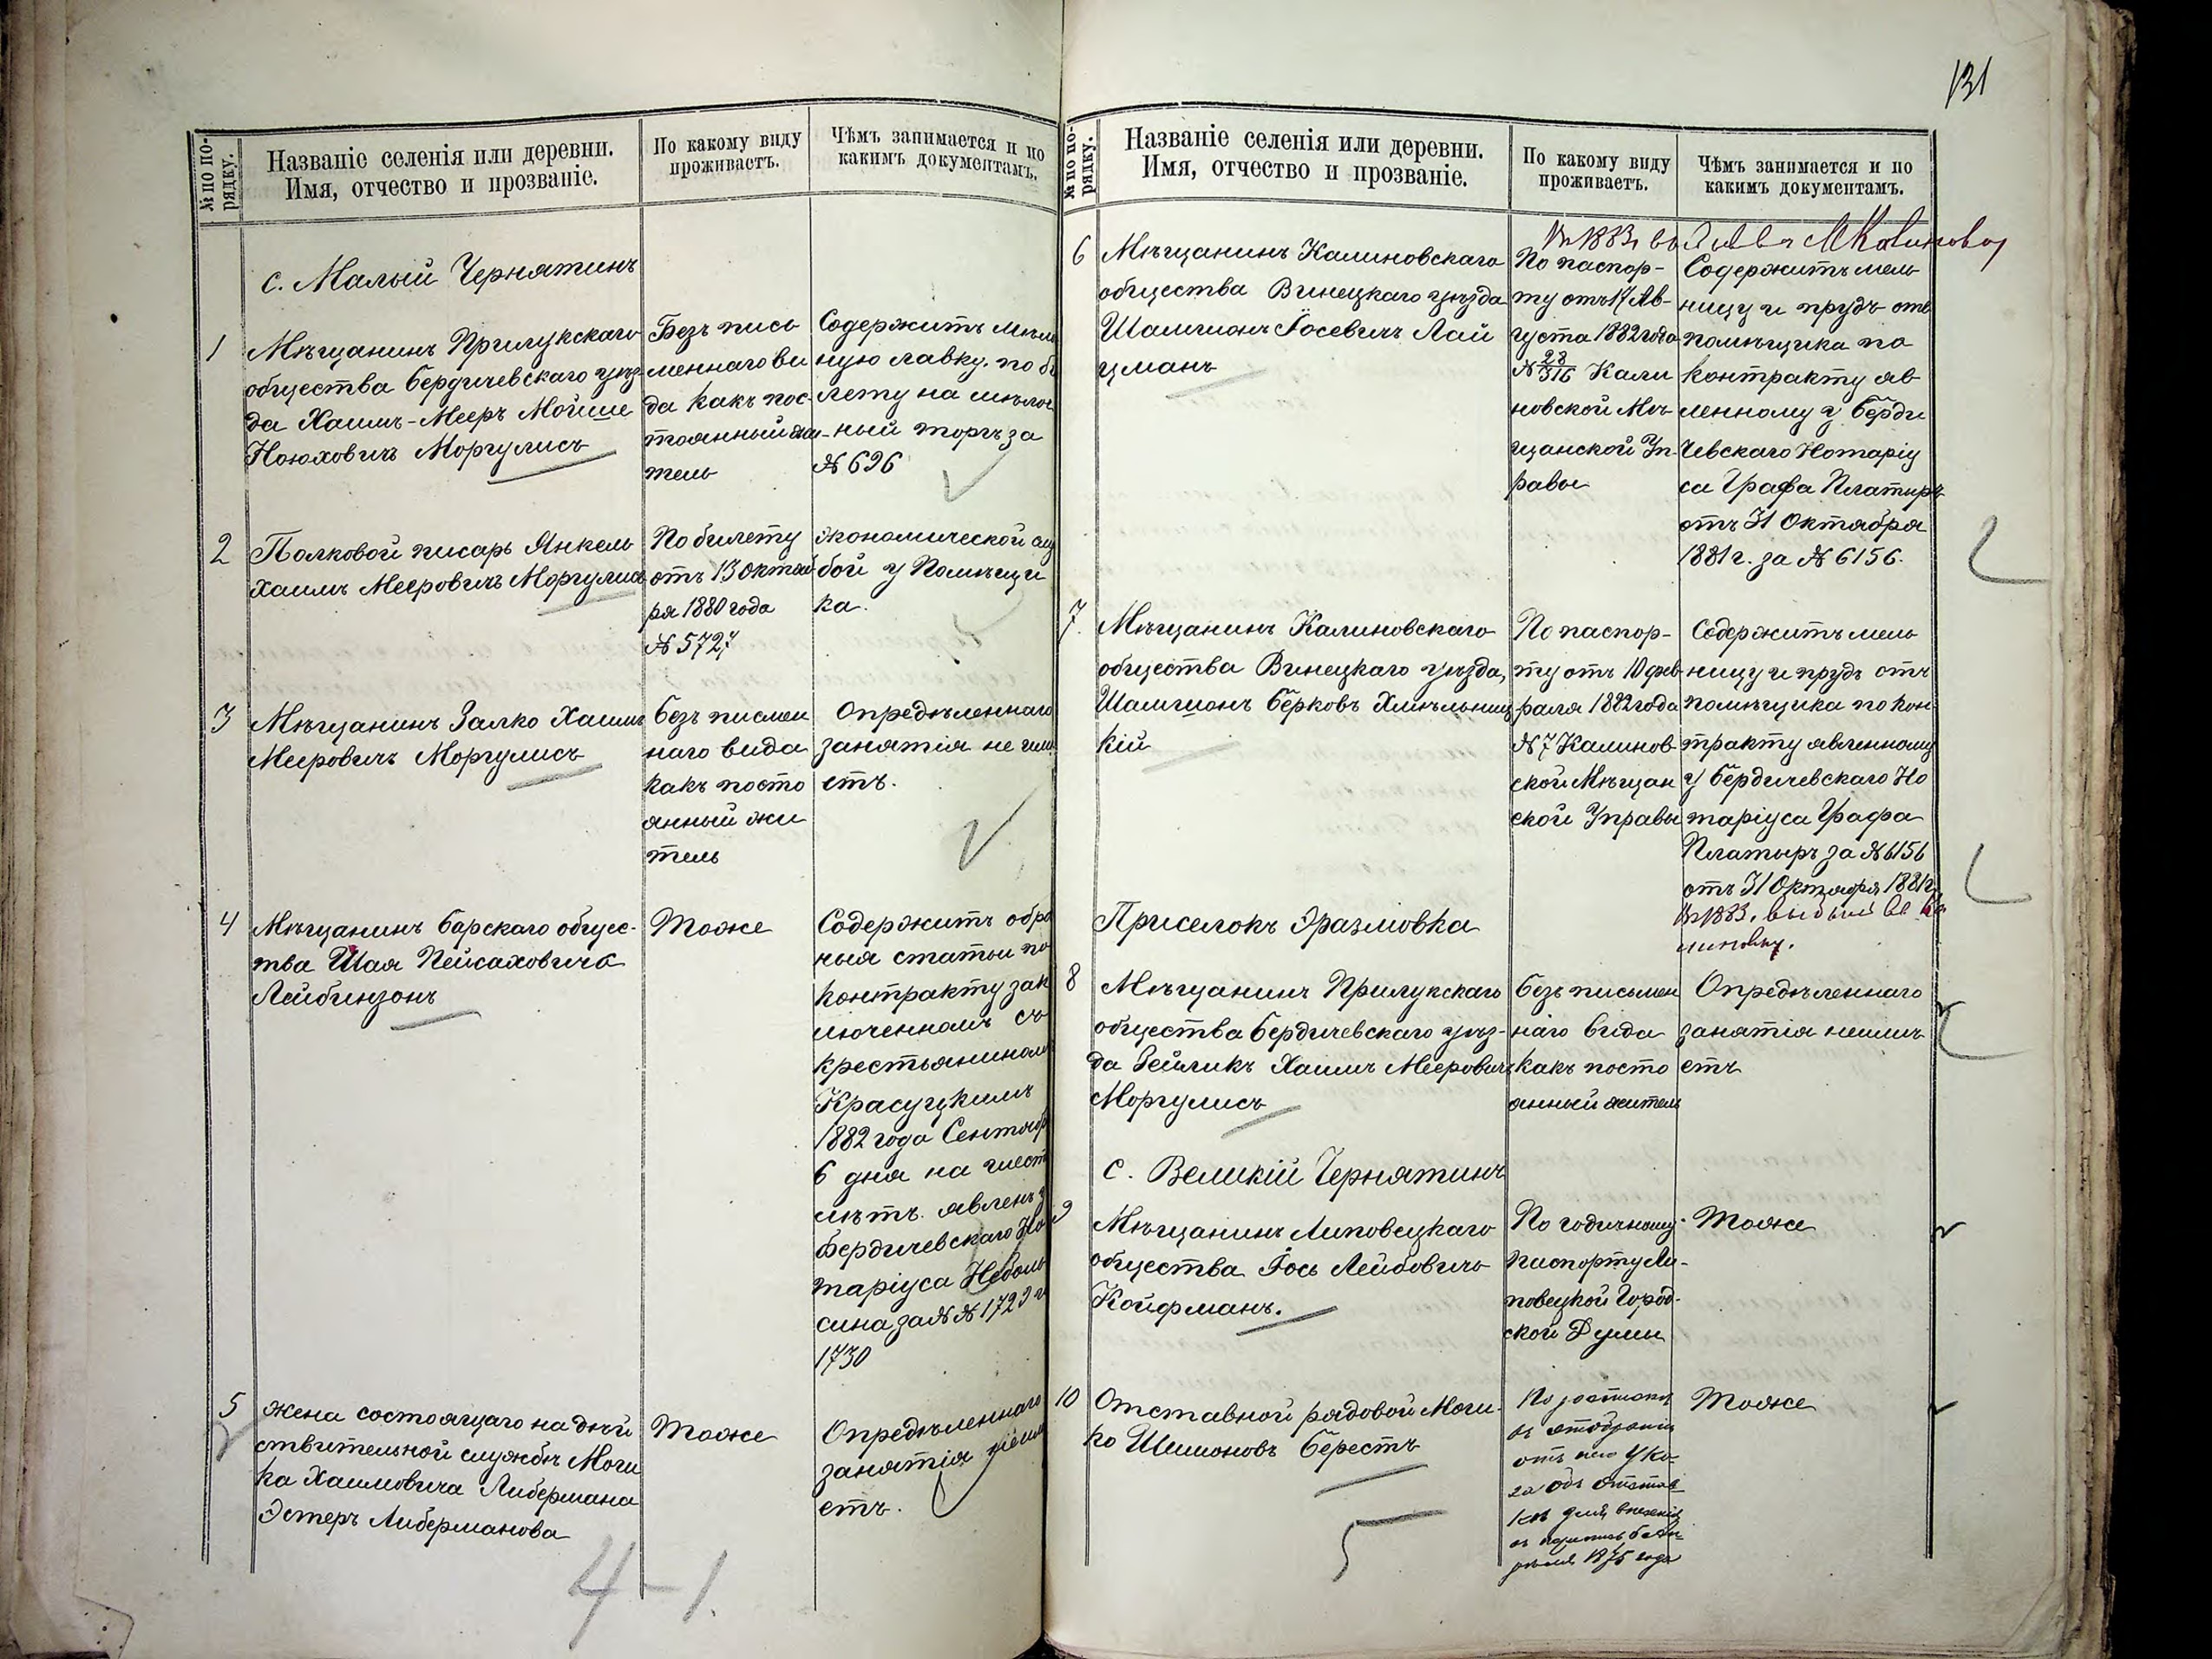 131
№ по по-
рядку.
Названіе селенія или деревни.
Имя, отчество и прозваніе.
По какому виду
проживаетъ.
Чѣмъ занимается и по
какимъ документамъ.
с. Малый Чернятинъ
1
Мѣщанинъ Прилукскаго
общества Бердичевскаго уѣз-
да Хаимъ-Мееръ Мойше
Ноюховичъ Моргулисъ
Безъ пись
меннаго ви
да какъ пос-
тоянный жи-
тель
Содержитъ мѣло
ную лавку. по би
лету на мѣлоч
ный торгъ за
№ 696
2
Полковой писарь Янкель
Хаимъ Мееровичъ Моргулисъ
По билету
отъ 13 октяб
ря 1880 года
№ 5727
экономической слу
бой у Помѣщи
ка.
3
Мѣщанинъ Залко Хаимъ
Мееровичъ Моргулисъ
безъ писмен
наго вида
какъ посто
янный жи
тель
Опредѣленнаго
занятія не имѣ
етъ.
4
Мѣщанинъ Барскаго общес-
тва Шая Пейсаховичъ
Лейбинзонъ
Тоже
Содержитъ обро
ныя статьи по
контракту зак
люченномъ съ
крестьяниномъ
Красуцкимъ
1882 года Сентябр
6 дня на шесть
лѣтъ явленъ у
Бердичевскаго Но
таріуса Неболь
сина за №№ 1729 и
1730
5
жена состоящаго на дѣй
ствительной службѣ Моги
ка Хаимовича Либермана
Эстеръ Либерманова
Тоже
Опредѣленнаго
занятія неимѣ
етъ.
4-1.
№ по по-
рядку.
Названіе селенія или деревни.
Имя, отчество и прозваніе.
По какому виду
проживаетъ.
Чѣмъ занимается и по
какимъ документамъ.
6
Мѣщанинъ Калиновскаго
общества Винецкаго уѣзда
Шамшонъ Іосевичъ Лай
цманъ
Въ 1883 г. вы
По паспор-
ту отъ 17 Ав-
густа 1882 года
№ 28/316 Кали
новской Мѣ-
щанской Уп-
равы
Содержитъ мель
ницу и прудъ отъ
помѣщика по
контракту яв
ленному у Берди
чевскаго Нотаріу
са Графа Платыръ
отъ 31 Октября
1881 г. за № 6156.
7.
Мѣщанинъ Калиновскаго
общества Винецкаго уѣзда,
Шамшонъ Берковъ Хмѣльниц
кій
По паспор-
ту отъ 10 фев-
раля 1882 года
№ 7 Калинов-
ской Мѣщан
ской Управы
Содержитъ мель
ницу и прудъ отъ
помѣщика по кон-
тракту явленному
у Бердичевскаго Но
таріуса Графа
Платыръ за № 6156
отъ 31 Октября 1881 г.
Въ 1883 г. выбылъ въ Ка
линовку.
Приселокъ Эразмовка
8
Мѣщанинъ Прилукскаго
общества Бердичевскаго уѣз-
да Зейликъ Хаимъ Мееровичъ
Моргулисъ
безъ писмен
наго вида
какъ посто
янный житель
Опредѣленнаго
занятія неимѣ
етъ
с. Великій Чернятинъ
9
Мѣщанинъ Липовецкаго
общества Іось Лейбовичъ
Койфманъ.
По годичному
паспорту Ли-
повецкой Город-
ской Думы
Тоже
10
Отставной рядовой Моги-
ко Шимоновъ Берестъ
По роспискѣ
въ отобраніи
отъ него Ука-
за объ отстав
кѣ
1875 года
Тоже
5